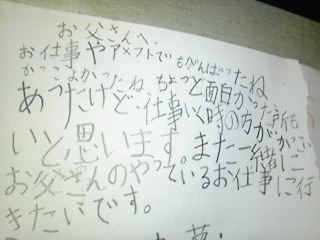 お父さんへ、
お仕事やアメフトでもがんばったね
かっこよかったね。ちょっと面白かった所も
あったけど、仕事いく時の方がかっこい
いと思います。また一緒に
お父さんのやっているお仕事に行
きたいです。